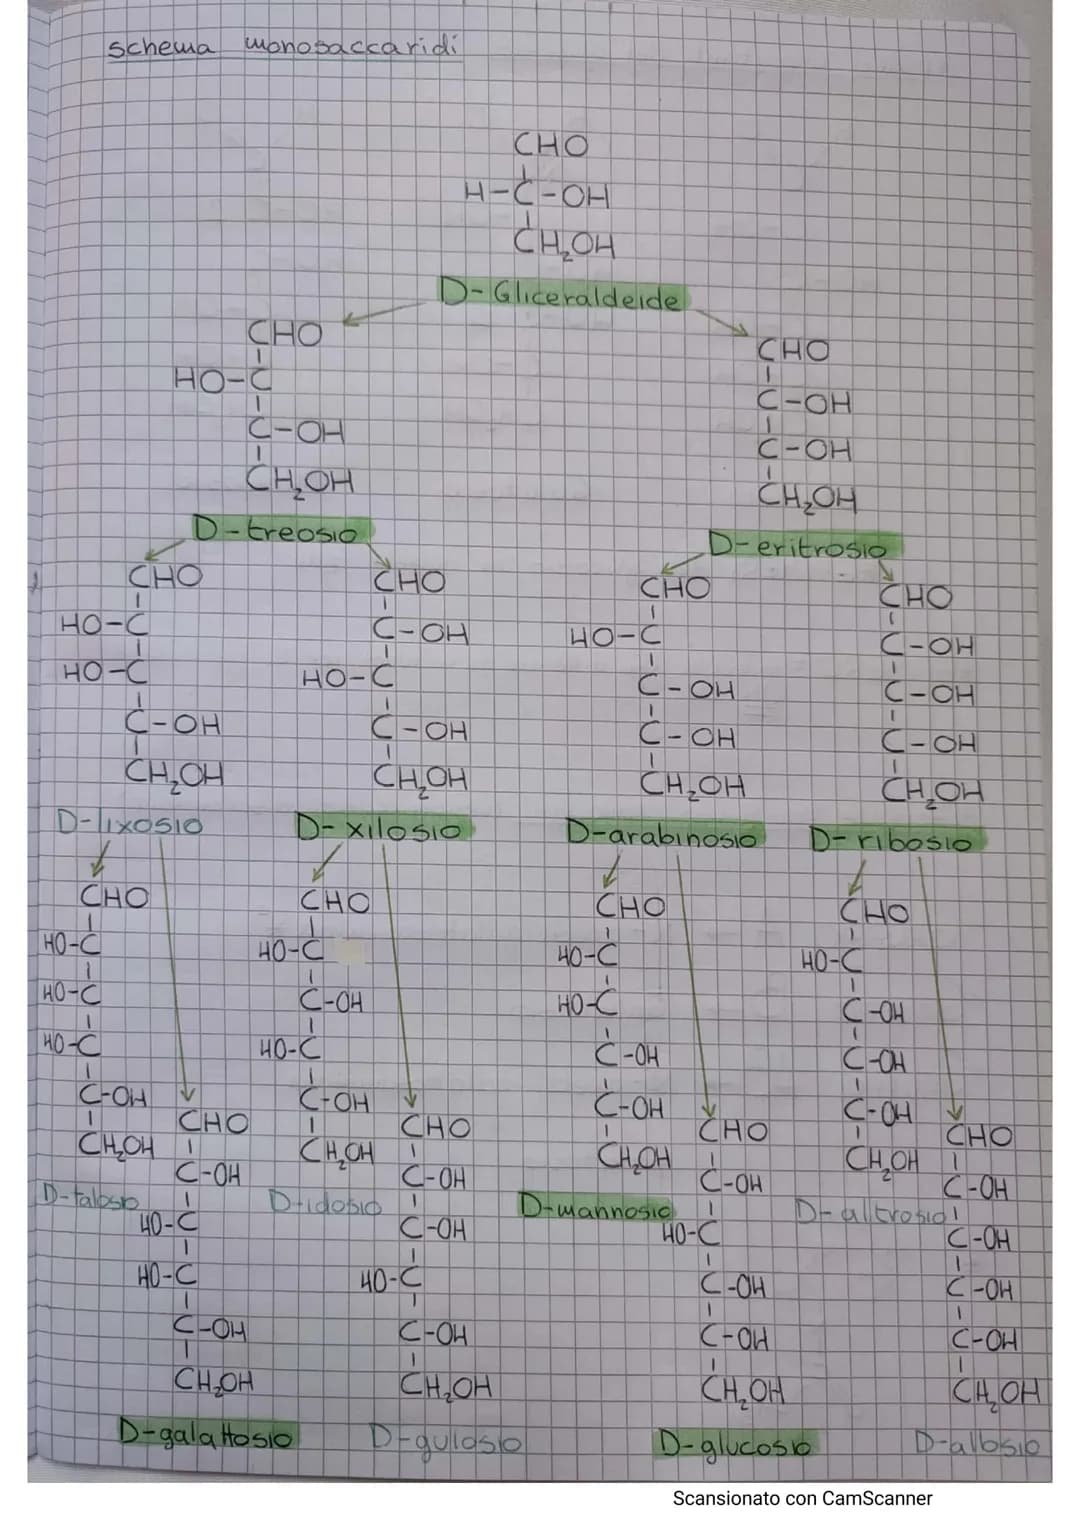 schema monosaccaridi
CHO
H-C-OH
CH₂OH
D-Gliceraldeide
CHO
HO-C
C-OH
CH₂OH
D-treosio
CHO
C-OH
C-OH
CH₂OH
D-eritrosio
CHO
HO-C
HO-C
C-OH
CH₂OH
D-lixosio
CHO
C-OH
HO-C
C-OH
CH₂OH
D-xilosio
CHO
HO-C
C-OH
C-OH
CH₂OH
D-arabinosio
CHO
C-OH
C-OH
C-OH
CH₂OH
D-ribosio
CHO
HO-C
HO-C
HO-C
C-OH
CH₂OH
D-talosio
CHO
C-OH
HO-C
HO-C
C-OH
CH₂OH
D-galattosio
CHO
HO-C
C-OH
HO-C
C-OH
CH₂OH
D-idosio
CHO
C-OH
C-OH
HO-C
C-OH
CH₂OH
D-gulosio
CHO
HO-C
HO-C
C-OH
C-OH
CH₂OH
D-mannosio
CHO
C-OH
HO-C
C-OH
C-OH
CH₂OH
D-glucosio
CHO
HO-C
C-OH
C-OH
C-OH
CH₂OH
D-altrosio
CHO
C-OH
C-OH
C-OH
C-OH
CH₂OH
D-allosio
Scansionato con CamScanner